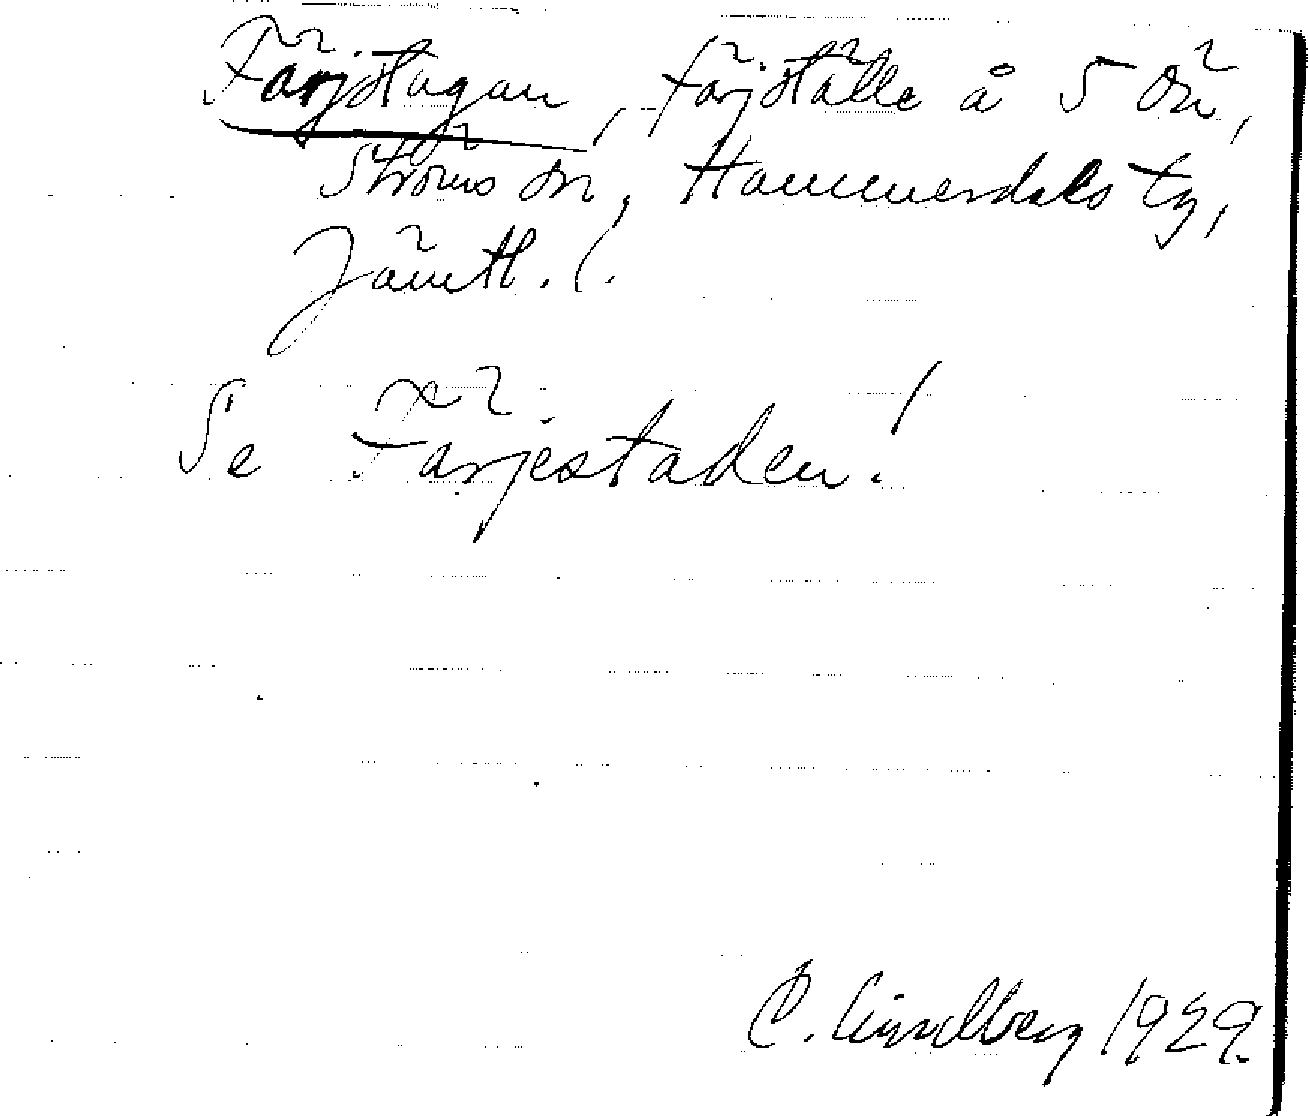 Färjstagan, färjställe å S ön,
Ströms sn, Hammerdals tg,
Jämtl. l.
Se Färjestaden!
C. Lindberg 1929